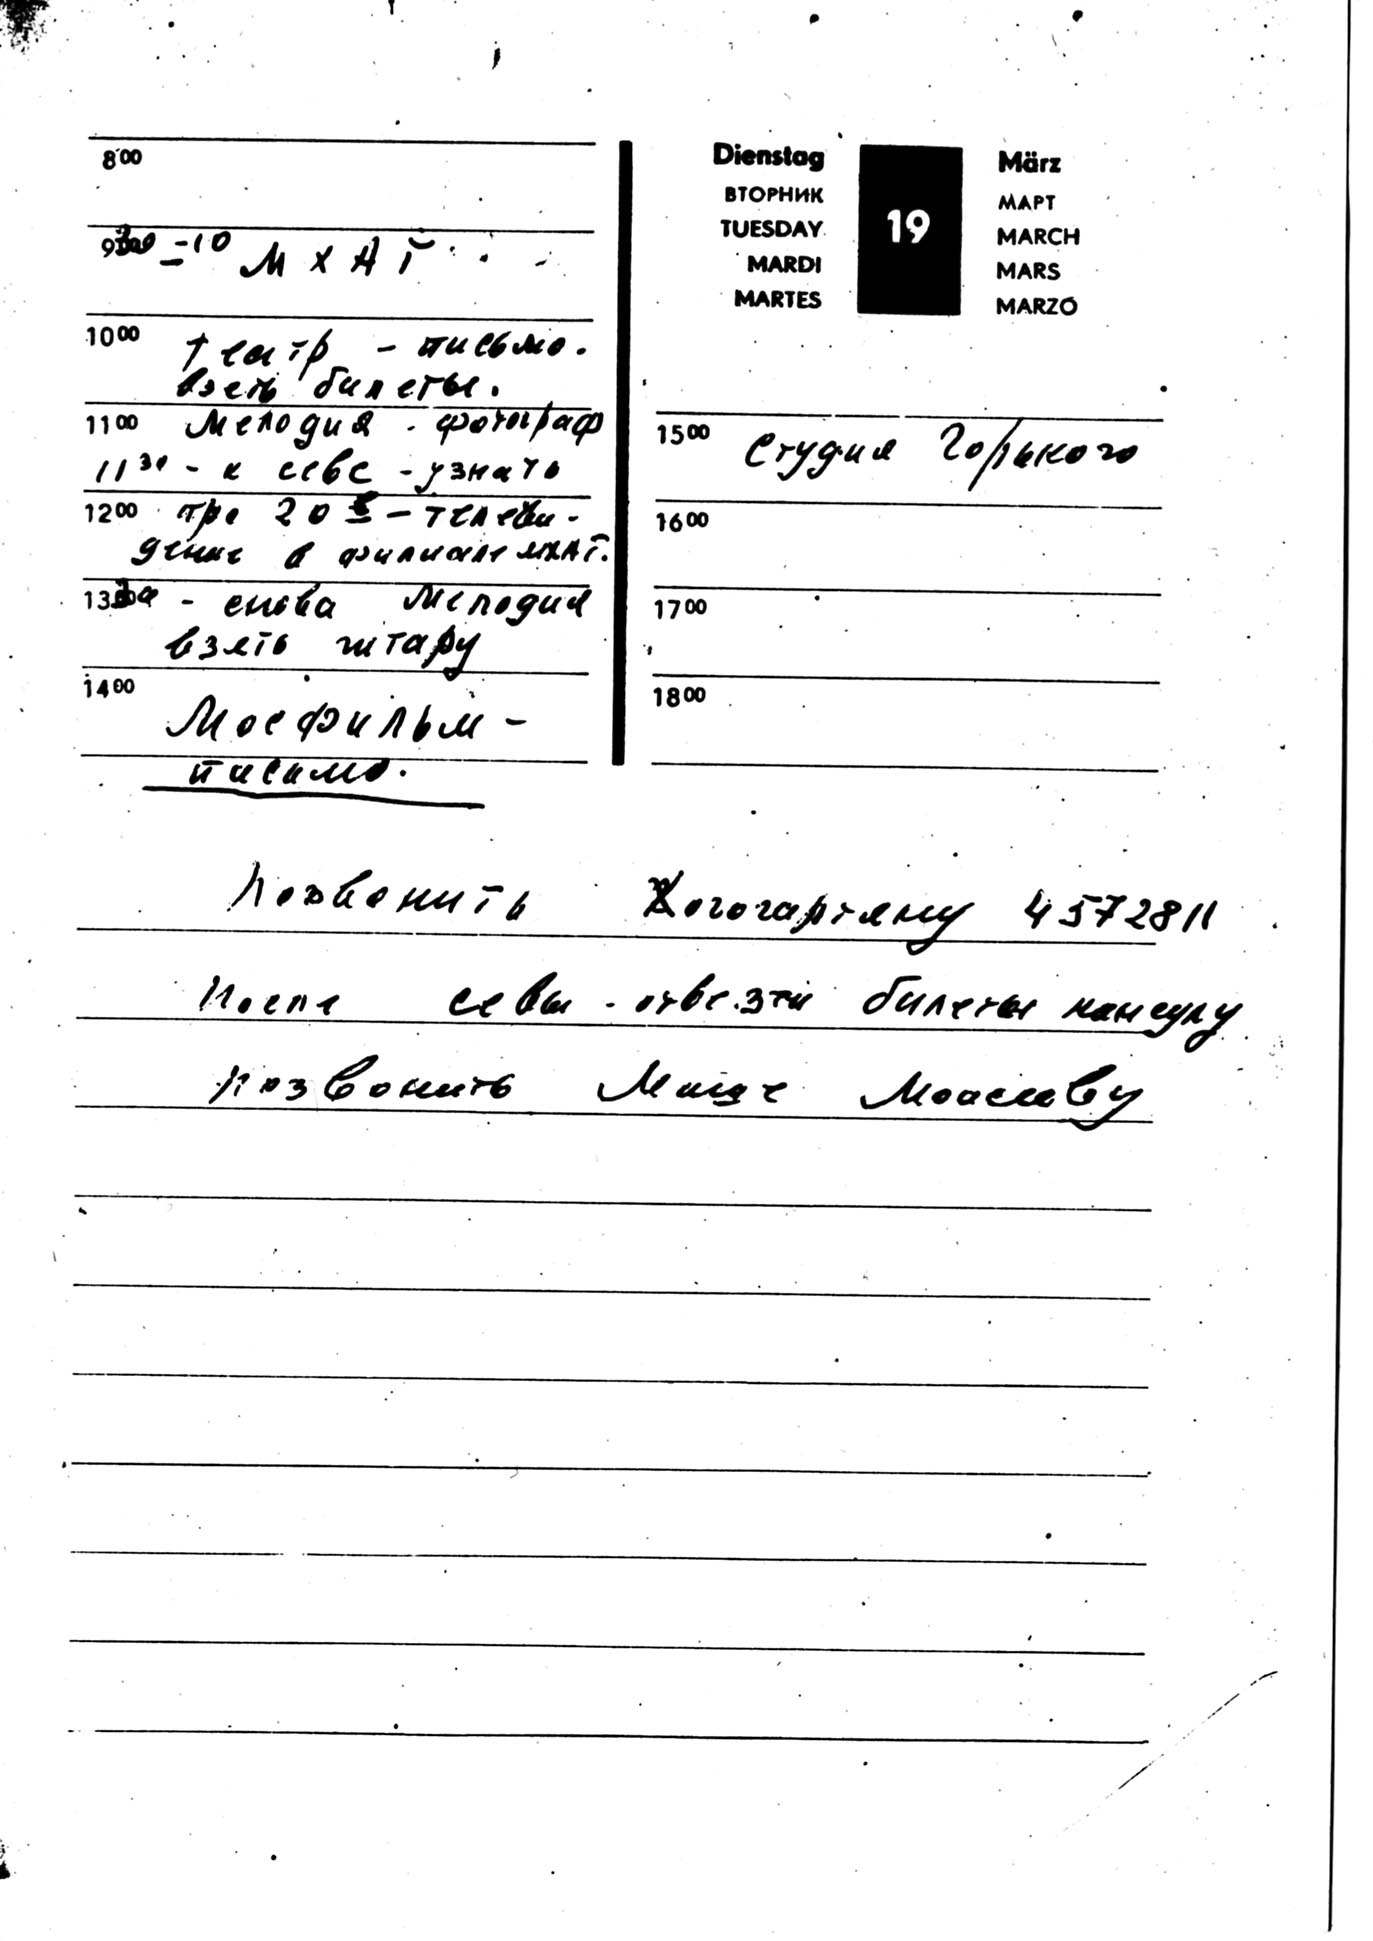 8 00
9 30 - 10 МХАТ
10 00 театр - письмо.
взеть билеты.
11 00 Мелодия - фотограф
11 30 - к севе - узнать
12 00 про 20 - телеви-
дение в филиале МХАТ.
13 30 - снова Мелодия
взять гитару
14 00
Мосфильм -
письмо.
Dienstag 19 März
ВТОРНИК МАРТ
TUESDAY MARCH
MARDI MARS
MARTES MARZO
15 00 Студия Горького
16 00
17 00
18 00
Позвонить 4572811
После севы - отвезти билеты консулу
позвонить Мише